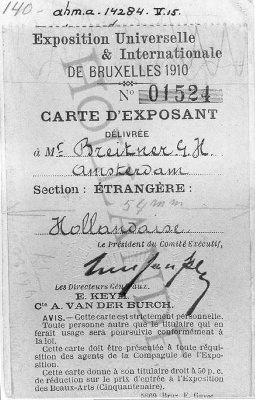 140
ahm.a. 14284. V.15.
Exposition Universelle
& Internationale
DE BRUXELLES 1910
No 01524
CARTE D'EXPOSANT
DÉLIVRÉE
à Mr Breitner G.H.
Amsterdam
Section : ÉTRANGÈRE :
54mm
Hollandaise
Le Président du Comité Exécutif,
Les Directeurs Généraux.
E. KEYM.
Cte A. VAN DER BURCH.
AVIS. — Cette carte est strictement personnelle.
Toute personne autre que le titulaire qui en
ferait usage sera poursuivie conformément à
la loi.
Cette carte doit être présentée à toute réqui-
sition des agents de la Compagnie de l'Expo-
sition.
Cette carte donne à son titulaire droit à 50 p. c.
de réduction sur le prix d'entrée à l'Exposition
des Beaux-Arts (Cinquantenaire).